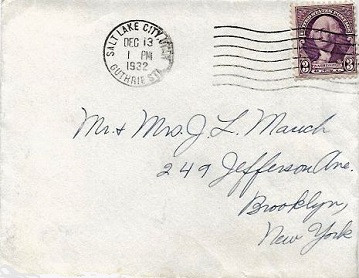 SALT LAKE CITY, UTAH
DEC 13
1 PM
1932
GUTHRIE STA.
3 3
Mr. & Mrs. J. L. Mauch
249 Jefferson Ave.
Brooklyn,
New York